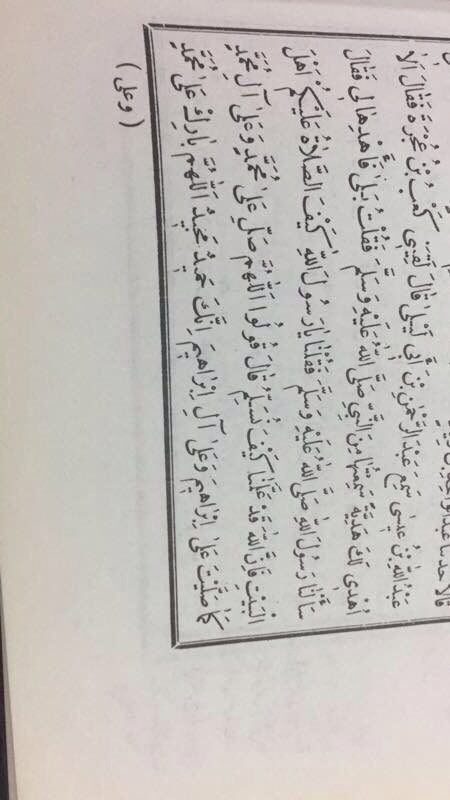 عَبْدُ اللّٰهِ بْنُ عِيسٰى سَمِعَ عَبْدَ الرَّحْمٰنِ بْنَ اَبِي لَيْلٰى قَالَ لَقِيَنِي كَعْبُ بْنُ عُجْرَةَ فَقَالَ اَلاَ
اُهْدِي لَكَ هَدِيَّةً سَمِعْتُهَا مِنَ النَّبِيِّ صَلَّى اللّٰهُ عَلَيْهِ وَسَلَّمَ فَقُلْتُ بَلٰى فَاَهْدِهَا لِي فَقَالَ
سَاَلْنَا رَسُولَ اللّٰهِ صَلَّى اللّٰهُ عَلَيْهِ وَسَلَّمَ فَقُلْنَا يَا رَسُولَ اللّٰهِ كَيْفَ الصَّلاَةُ عَلَيْكُمْ اَهْلَ
الْبَيْتِ فَاِنَّ اللّٰهَ قَدْ عَلَّمَنَا كَيْفَ نُسَلِّمُ قَالَ قُولُوا اَللّٰهُمَّ صَلِّ عَلٰى مُحَمَّدٍ وَعَلٰى آلِ مُحَمَّدٍ
كَمَا صَلَّيْتَ عَلٰى اِبْرَاهِيمَ وَعَلٰى آلِ اِبْرَاهِيمَ اِنَّكَ حَمِيدٌ مَجِيدٌ اَللّٰهُمَّ بَارِكْ عَلٰى مُحَمَّدٍ
(وعلى)